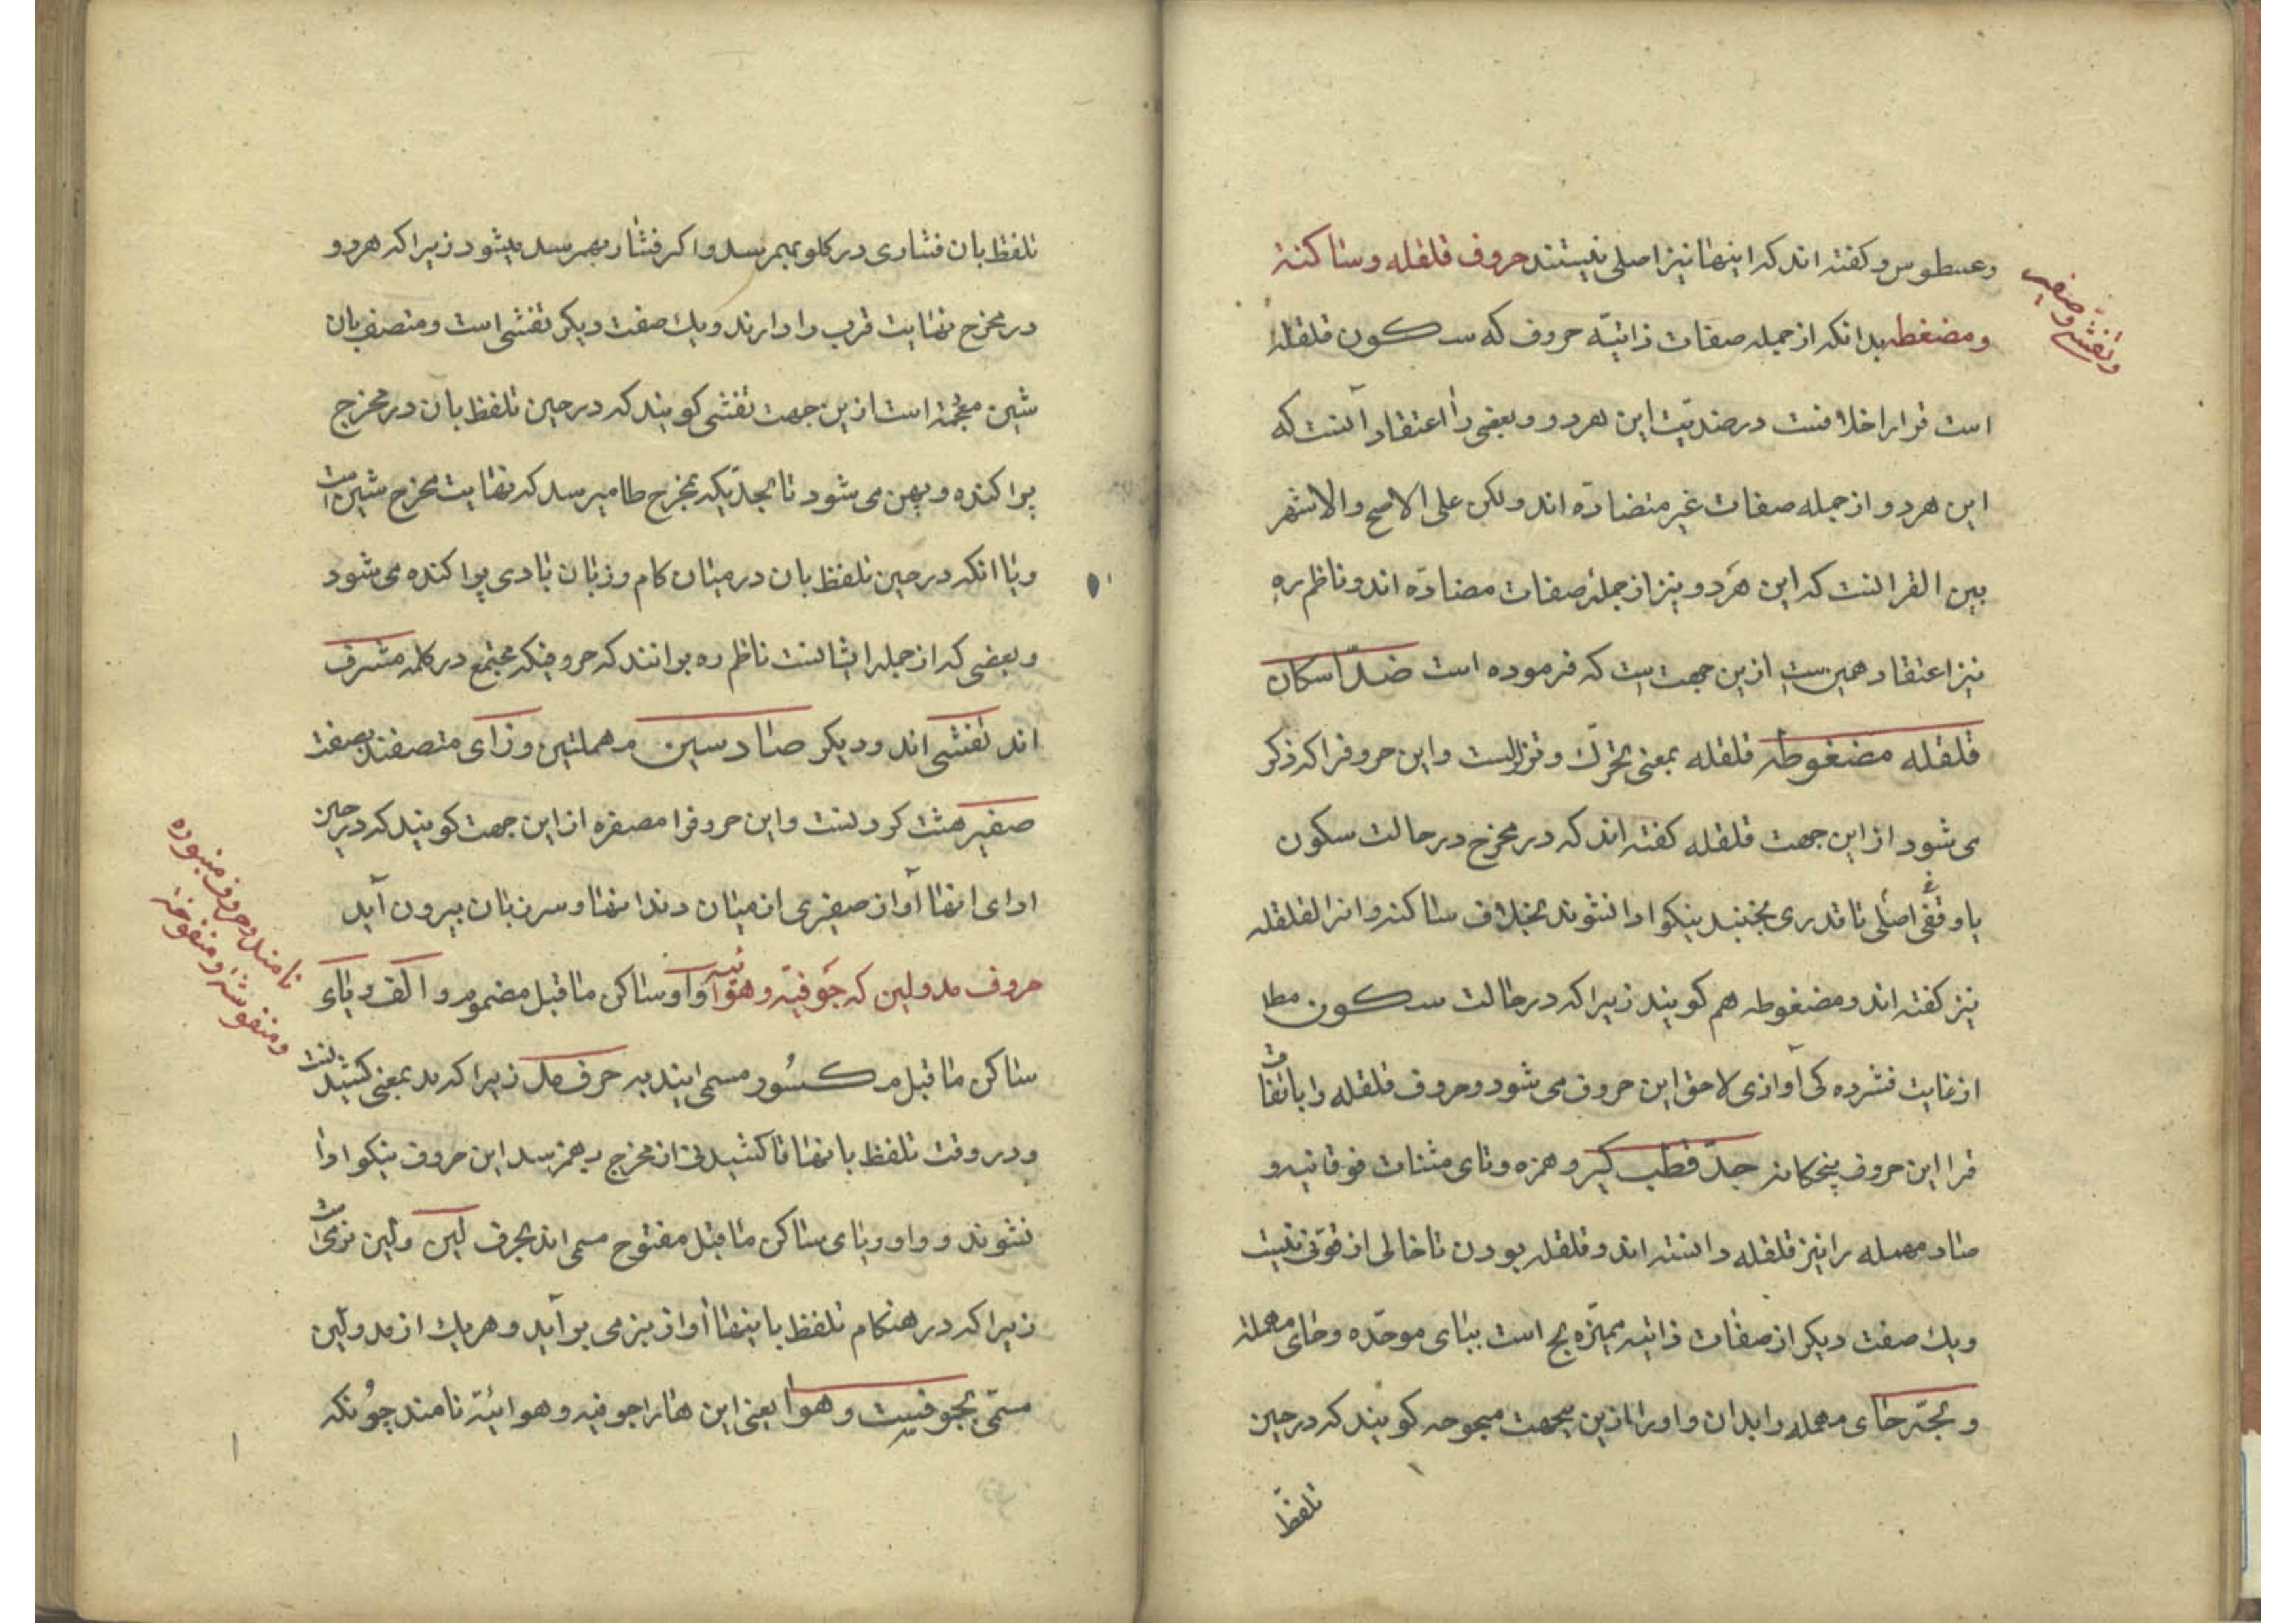 وعسطوس و کفته اند که اینها نیز اصلی نیستند حروف قلقله و ساکنة
ومضغطه بدانکه از جمله صفات ذاتیّه حروف که سکون قلقله
است قرا را خلافست در ضدیّت این هر دو و بعضی را اعتقاد آنست که
این هردو از جمله صفات غیر متضادّه اند ولکن علی الاصح والاشهر
بین القرا انست که این هردو نیز از جملهٔ صفات مضادّه اند و ناظم ره
نیز اعتقاد همین ست ازین جهت ست که فرموده است ضدّ اسکان
قلقله مضغوطه قلقله بمعنی تحرّک و تزلزلست واین حروفرا که ذکر
می شود از این جهت قلقله کفته اند که در مخرج در حالت سکون
یا وقفی اصلی تا قدری نجنبند نیکو ادا نشوند بخلاف ساکنه و انرا لقلقله
نیز کفته اند و مضغوطه هم کویند زیرا که در حالت سکون مطا
از غایت فشرده کی آوازی لاحق این حروف می شود و حروف قلقله را باتفاق
قرا این حروف پنجکانه جدّ قطب کیر و همزه و تای مثنات فوقانیه و
صاد مهمله را نیز قلقله دانسته اند و قلقله بودن تا خالی از قوّتی نیست
ویک صفت دیکر از صفات ذاتیه ممیّزه بح است ببای موحّده و حای مهملة
و بحّه حای مهمله را بدان و اورا ازین جهت مبحوحه کویند که در حین
تلفظ
وتفشّی وصفیر
تلفظ بان فشاری در کلو بهم رسد و اکر فشار بهم رسد میشود زیرا که هردو
در مخرج نهایت قرب را دارند ویک صفت دیکر تفشّی است و متصف بان
شین معجمة است ازین جهت تفشی کویند که در حین تلفظ بان در مخرج
پراکنده و پهن می شود تا بحدّیکه بمخرج طا میرسد که نهایت مخرج شین است
ویا انکه در حین تلفظ بان در میان کام و زبان بادی پراکنده می شود
و بعضی که از جمله ایشانست ناظم ره برانند که حروفیکه مجتمع در کلمه مشرف
اند تفشی اند و دیکر صاد سین مهملتین و زای متصفند بصفت
صفیر هشت کردنست واین حروفرا مصفره از این جهت کویند که در حین
ادای انها آواز صفیری از میان دندانها و سر زبان بیرون آید
حروف مد ولین که جوفیّه و هوائیه واو ساکن ماقبل مضموم و الف و یای
ساکن ماقبل مکسور مسمی ایند به حرف مد زیرا که مد بمعنی کشیدنست
و در وقت تلفظ بانها تا کشیدنی از مخرج بهم نرسد این حروف نیکو ادا
نشوند و واو و یای ساکن ماقبل مفتوح مسمی اند بحرف لین ولین نرمی است
زیرا که در هنکام تلفظ باینها آواز بنرمی بر آید و هر یک از مد ولین
مسمّی بجوفیست و هوا یعنی این هارا جوفیه و هوائیّه نامند چونکه
نامند و حروف منبوره
ومنفوشه و منفوخة